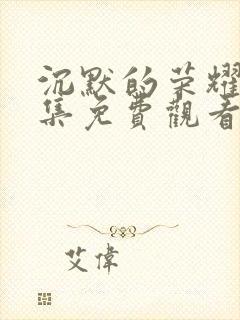 沉默的荣耀
集免費觀看
艾偉